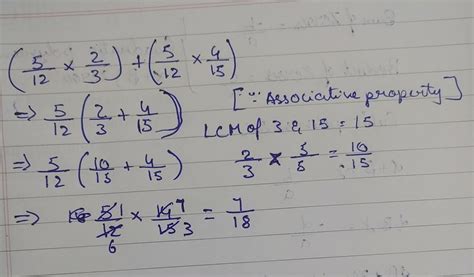 (5/12 × 2/3) + (5/12 × 4/15)
⇒ 5/12 (2/3 + 4/15) [∵ Associative property]
LCM of 3 & 15 = 15
⇒ 5/12 (10/15 + 4/15) 2/3 × 5/5 = 10/15
⇒ 5 1/12 6 × 14 7/15 3 = 7/18